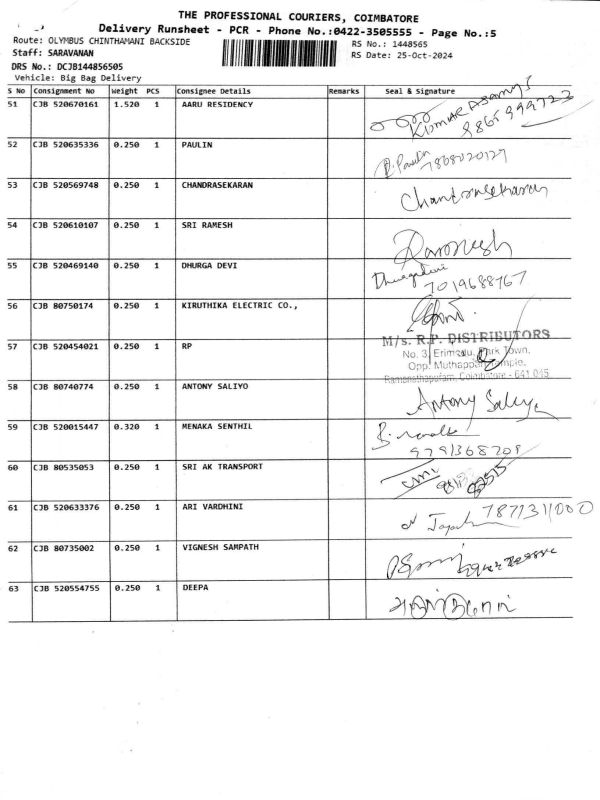 THE PROFESSIONAL COURIERS, COIMBATORE
Delivery Runsheet - PCR - Phone No.:0422-3505555 - Page No.:5
Route: OLYMBUS CHINTHAMANI BACKSIDE
RS No.: 1448565
Staff: SARAVANAN
RS Date: 25-Oct-2024
DRS No.: DCJB144856505
Vehicle: Big Bag Delivery
S No Consignment No Weight PCS Consignee Details Remarks Seal & Signature
51 CJB 520670161 1.520 1 AARU RESIDENCY
52 CJB 520635336 0.250 1 PAULIN
Paulin
7868020127
53 CJB 520569748 0.250 1 CHANDRASEKARAN Chandrasekaran
54 CJB 520610107 0.250 1 SRI RAMESH Ramesh
55 CJB 520469140 0.250 1 DHURGA DEVI
7019688767
56 CJB 80750174 0.250 1 KIRUTHIKA ELECTRIC CO.,
M/s. R.P. DISTRIBUTORS
57 CJB 520454021 0.250 1 RP
Opp. Muthappan Temple,
Ramanathapuram, Coimbatore - 641 045
58 CJB 80740774 0.250 1 ANTONY SALIYO Antony Saliyo
59 CJB 520015447 0.320 1 MENAKA SENTHIL
9791368708
60 CJB 80535053 0.250 1 SRI AK TRANSPORT
61 CJB 520633376 0.250 1 ARI VARDHINI 7871311000
62 CJB 80735002 0.250 1 VIGNESH SAMPATH
63 CJB 520554755 0.250 1 DEEPA